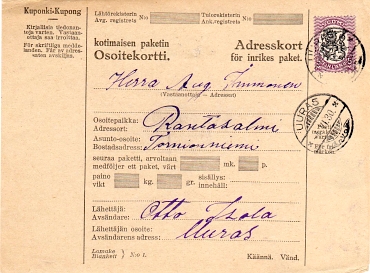 Kuponki-Kupong
Kirjallisia tiedonan-
toja varten. Vastaan-
ottaja saa irroittaa.
För skriftliga medde-
landen. Får av adres-
saten avskiljas.
Lähtörekisterin N:o
Avg. registrets
Tulorekisterin N:o
Ank. registrets
kotimaisen paketin
Osoitekortti.
Adresskort
för inrikes paket.
Herra Aug. Immonen
(Vastaanottaja - Adressat)
Osoitepaikka:
Adressort:
Rantasalmi
Asunto-osoite:
Bostadsadress:
Tornioniemi
seuraa paketti, arvoltaan mk. p.
medföljer ett paket, värt
paino kg. gr. sisällys:
vikt innehåll:
Lähettäjä:
Avsändare:
Otto Isola
Lähettäjän osoite:
Avsändarens adress:
Uuras
Lomake
Blankett N:o 1.
Käännä. Vänd.
UURAS